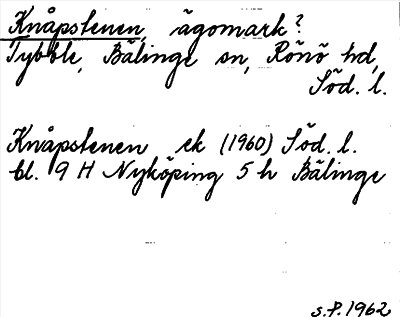 Knåpstenen, ägomark?
Tybble, Bälinge sn, Rönö hd,
Söd. l.
Knåpstenen ek (1960) Söd. l.
bl. 9 H Nyköping 5 h Bälinge
s.P. 1962